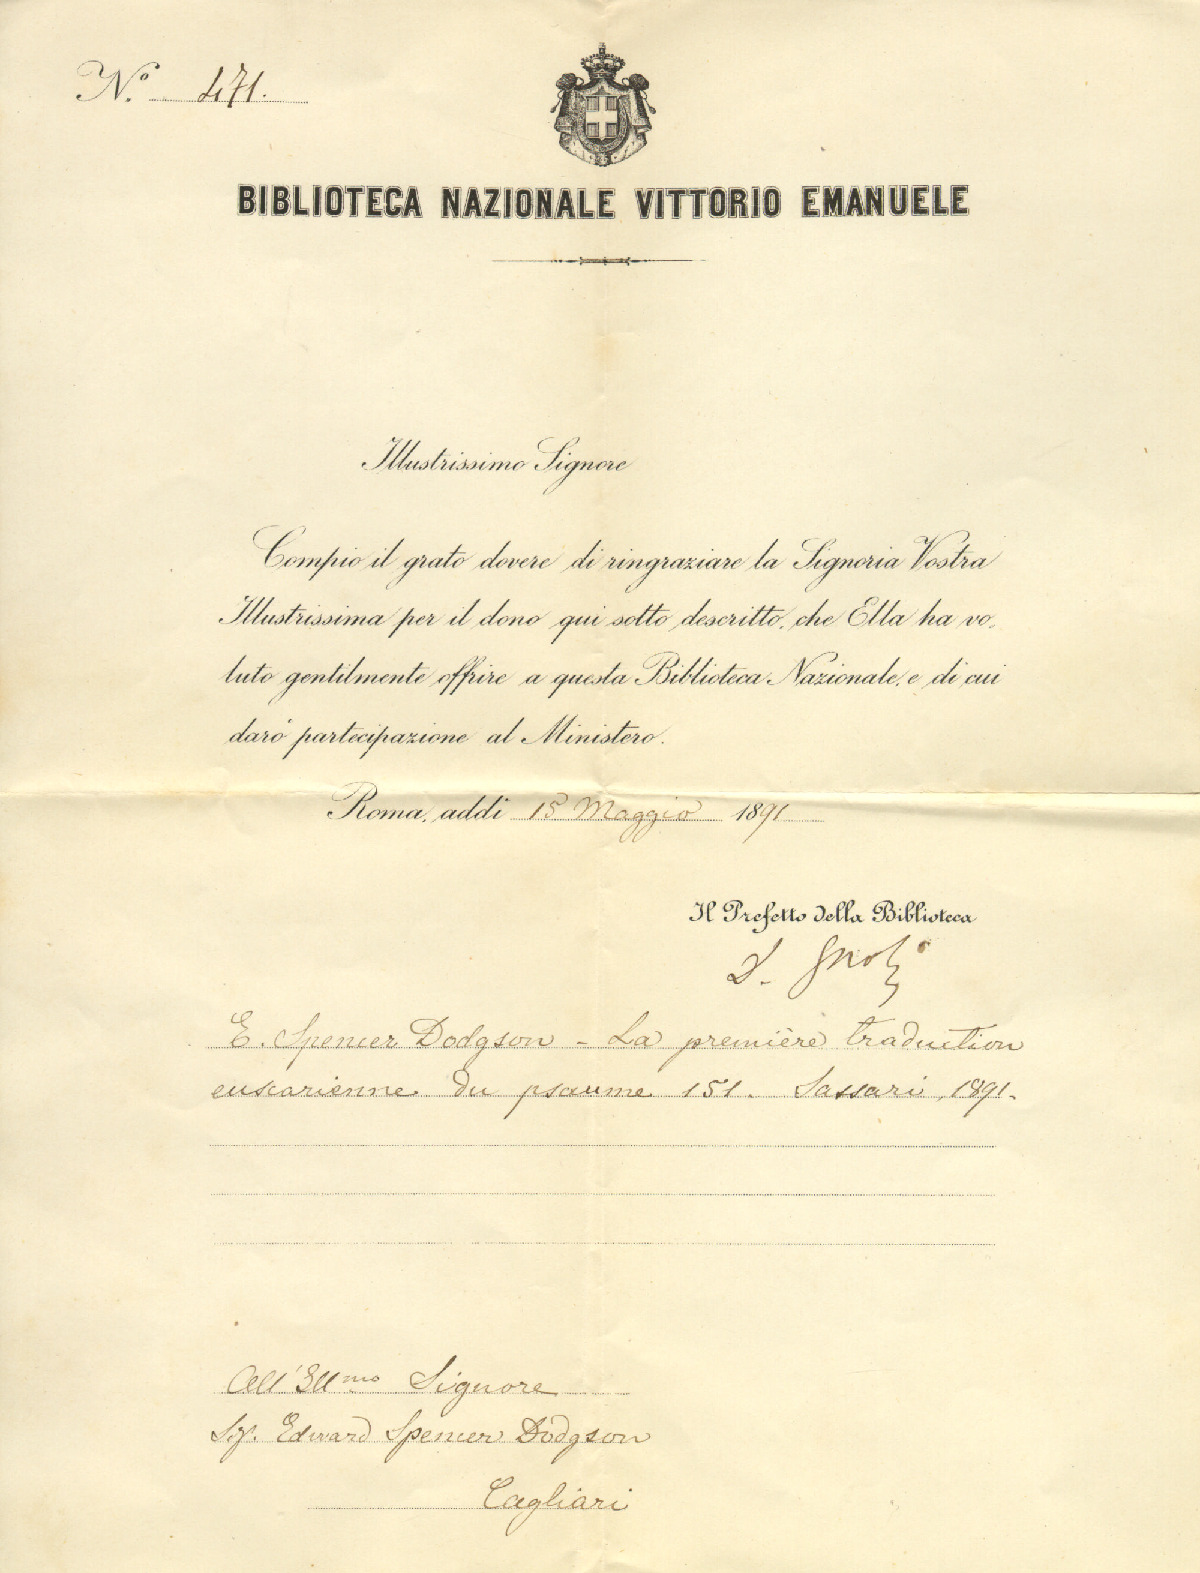 N.º 471.
BIBLIOTECA NAZIONALE VITTORIO EMANUELE
Illustrissimo Signore
Compio il grato dovere di ringraziare la Signoria Vostra
Illustrissima per il dono qui sotto descritto, che Ella ha vo-
luto gentilmente offrire a questa Biblioteca Nazionale, e di cui
darò partecipazione al Ministero.
Roma, addì 15 Maggio 1891
Il Prefetto della Biblioteca
D. Gnoli
E. Spencer Dodgson - La première traduction
euscarienne du psaume 151. Sassari, 1891.
All'Ill.mo Signore
Sig. Edward Spencer Dodgson
Cagliari